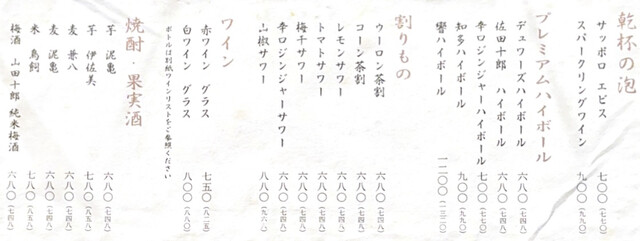 乾杯の泡
サッポロ エビス 七〇〇（七七〇）
スパークリングワイン 九〇〇（九九〇）
プレミアムハイボール
デュワーズハイボール 六八〇（七四八）
佐田十郎 ハイボール 六八〇（七四八）
辛口ジンジャーハイボール 七〇〇（七七〇）
知多ハイボール 九〇〇（九九〇）
響ハイボール 一二〇〇（一三二〇）
割りもの
ウーロン茶割 六八〇（七四八）
コーン茶割 六八〇（七四八）
レモンサワー 六八〇（七四八）
トマトサワー 六八〇（七四八）
梅干サワー 六八〇（七四八）
辛口ジンジャーサワー 六八〇（七四八）
山椒サワー 八八〇（九六八）
ワイン
赤ワイン グラス 七五〇（八二五）
白ワイン グラス 八〇〇（八八〇）
ボトルは別紙ワインリストをご参照ください
焼酎・果実酒
芋 泥亀 六八〇（七四八）
芋 伊佐美 七八〇（八五八）
麦 兼八 六八〇（七四八）
麦 泥亀 六八〇（七四八）
米 鳥飼 七八〇（八五八）
梅酒 山田十郎 純米梅酒 六八〇（七四八）